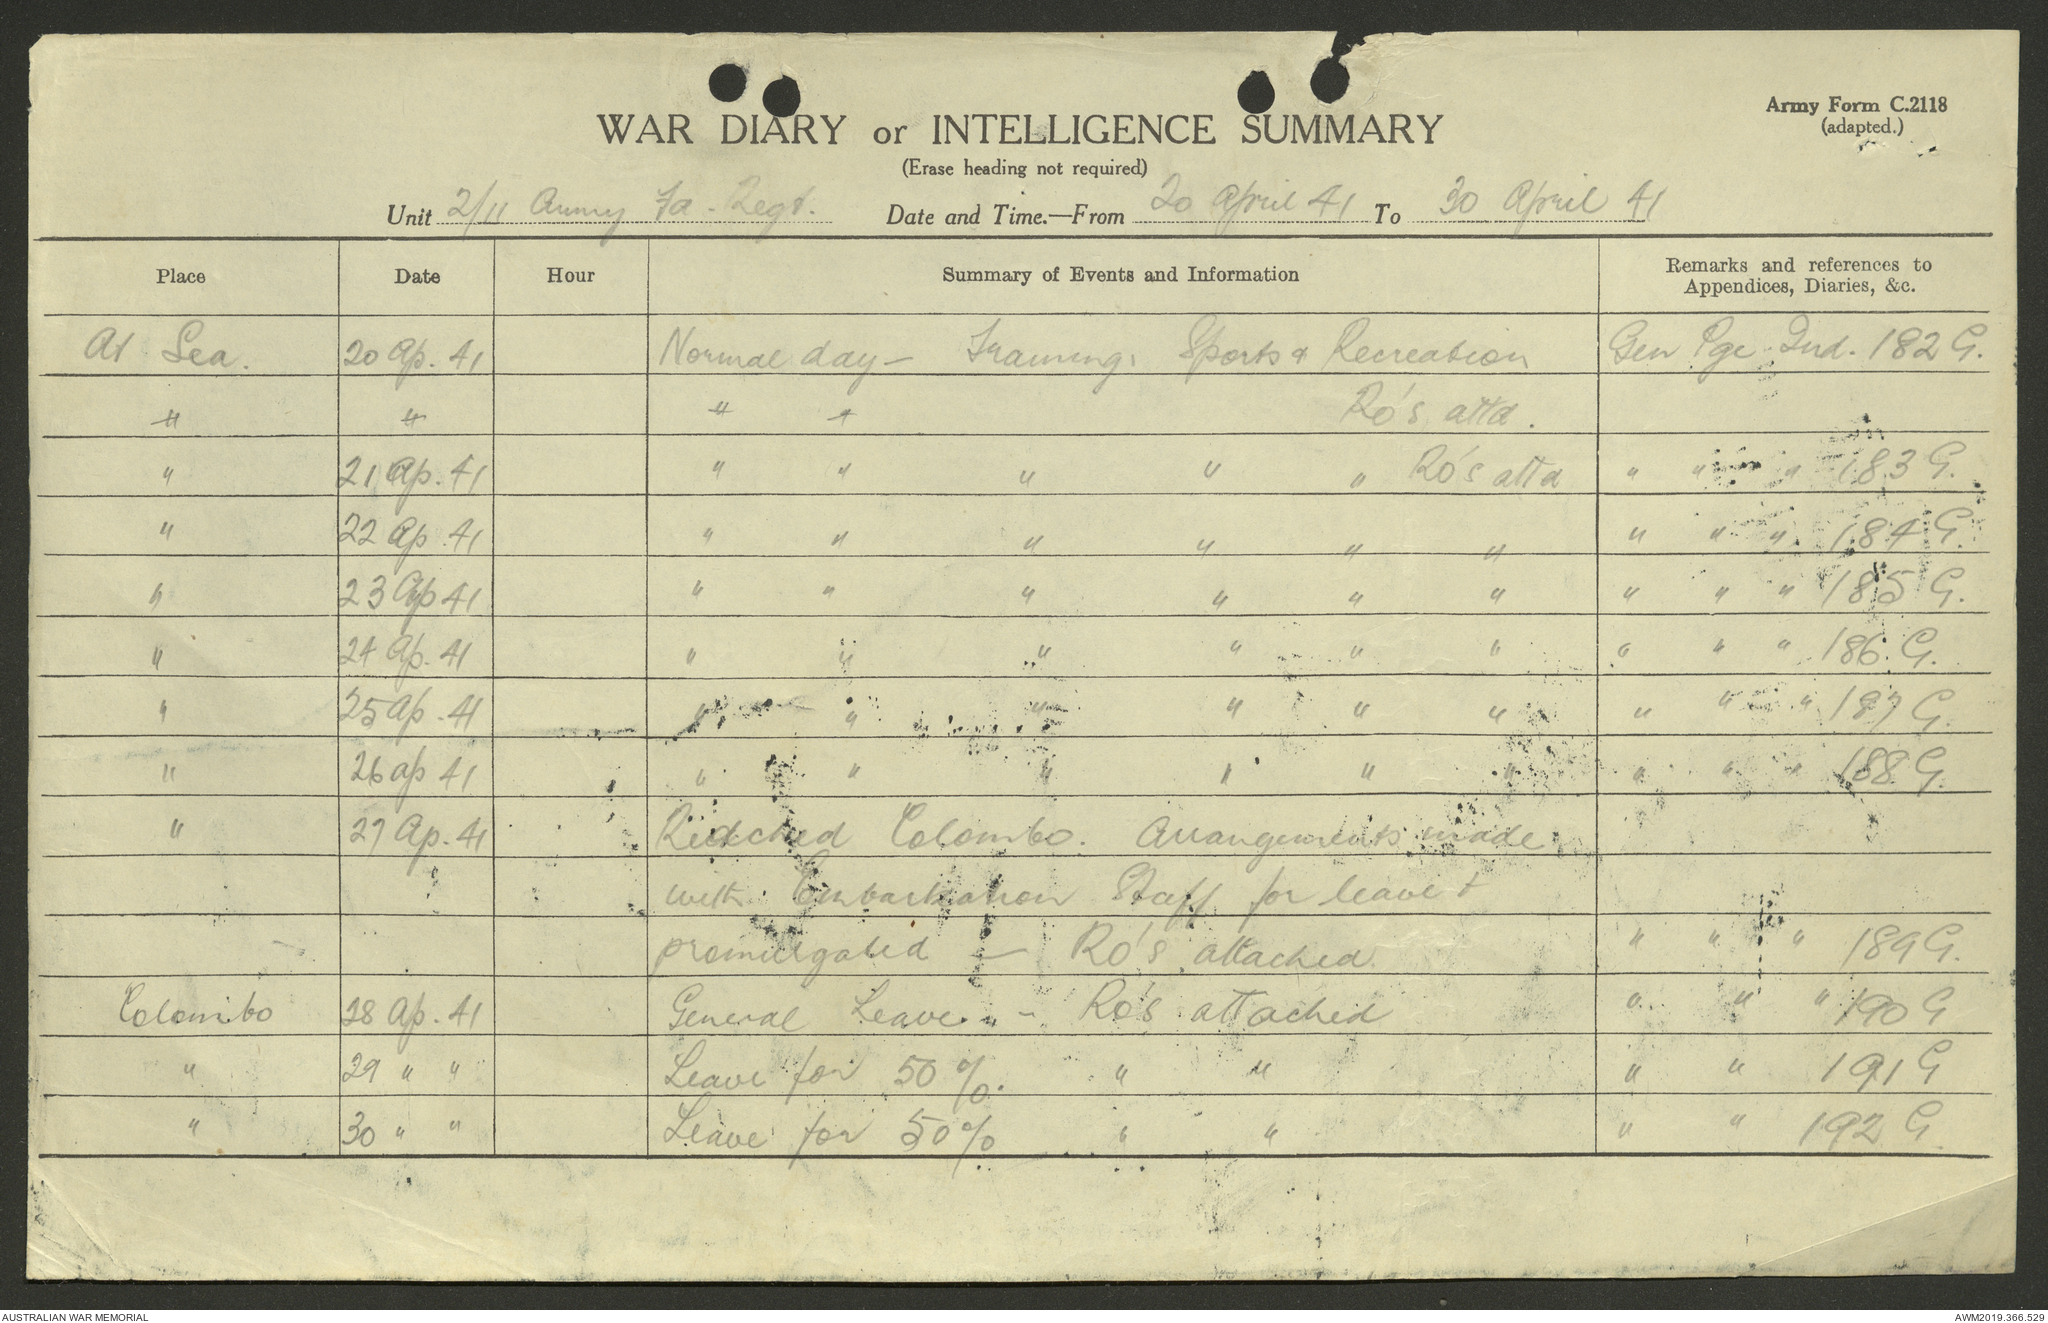 Army Form C.2118
(adapted.)
WAR DIARY or INTELLIGENCE SUMMARY
(Erase heading not required)
Unit 2/11 Army Fd. Regt. Date and Time.—From 20 April 41 To 30 April 41
Place Date Hour Summary of Events and Information Remarks and references to Appendices, Diaries, &c.
At Sea. 20 Ap. 41 Normal day — Training, Sports & Recreation Gen Pge Ind. 182 G.
" " " " Ro's attd.
" 21 Ap. 41 " " " " " Ro's attd " " " 183 G.
" 22 Ap 41 " " " " " " " " " 184 G.
" 23 Ap 41 " " " " " " " " " 185 G.
" 24 Ap. 41 " " " " " " " " " 186 G.
" 25 Ap. 41 " " " " " " " " " 187 G.
" 26 Ap 41 " " " " " " " " " 188 G.
" 27 Ap. 41 Reached Colombo. Arrangements made
with Embarkation Staff for leave &
promulgated — Ro's attached " " " 189 G.
Colombo 28 Ap. 41 General Leave — Ro's attached " " " 190 G
" 29 " " Leave for 50%. " " " " 191 G
" 30 " " Leave for 50% " " " " 192 G.
AUSTRALIAN WAR MEMORIAL AWM2019.366.529